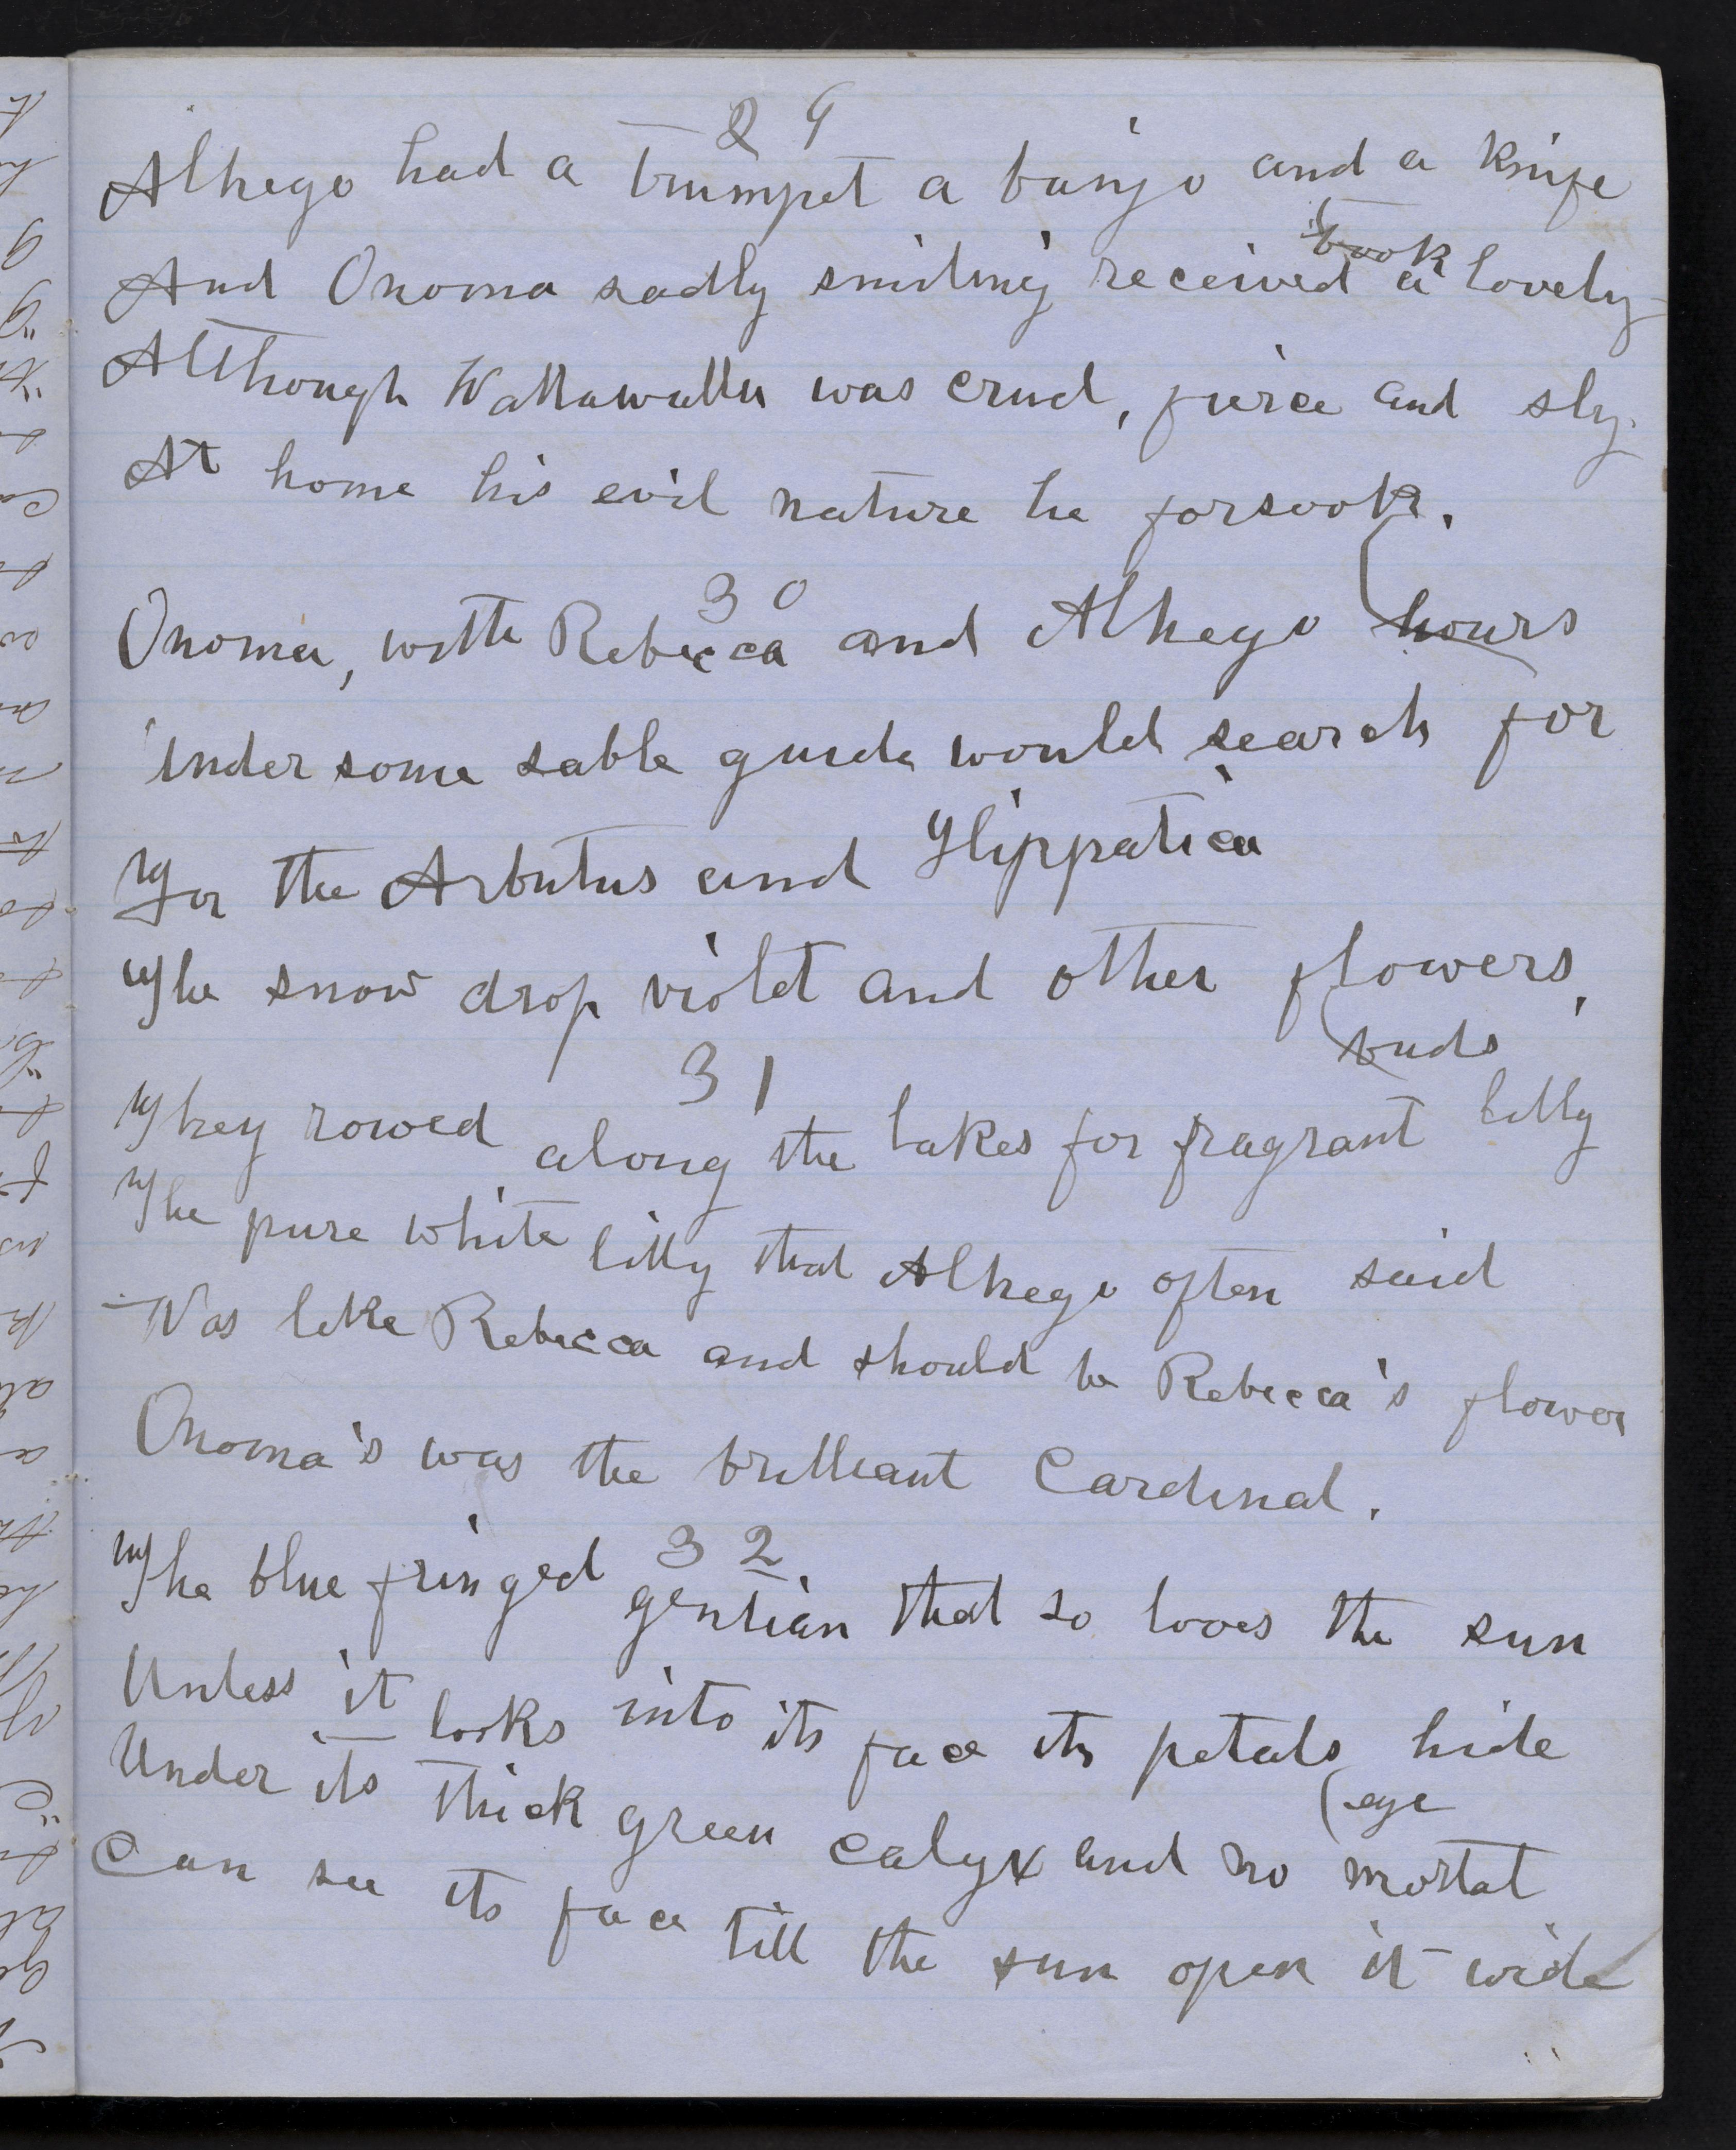 29
Alhego had a trumpet a banjo and a knife
(book
And Onoma sadly smiling received a lovely
Although Wallawalla was cruel, fierce and sly.
At home his evil nature he forsook.
30
Onoma, with Rebecca and Alhego (hours
Under some sable guide would search for
For the Arbutus and Hippatica
The snow drop violet and other flowers,
31
(buds
They rowed along the lakes for fragrant lilly
The pure white lilly that Alhego often said
Was like Rebecca and should be Rebecca's flower
Onoma's was the brilliant Cardinal.
32
The blue fringed gentian that so loves the sun
Unless it looks into its face its petals hide
(eye
Under its thick green calyx and no mortal
Can see its face till the sun open it wide